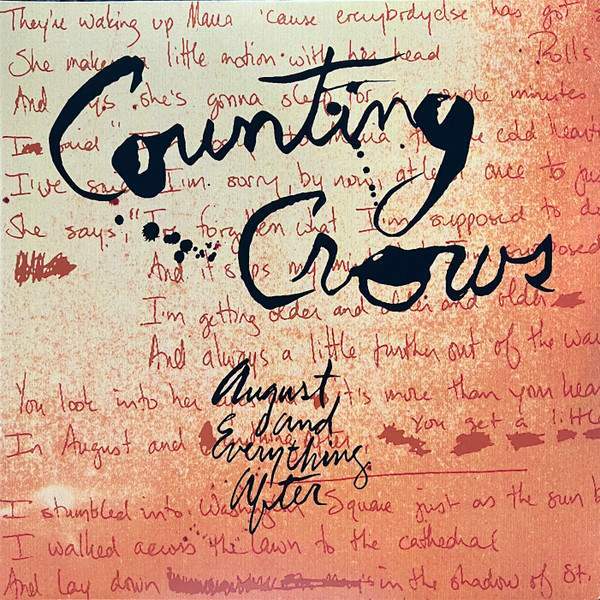 They're waking up Maria 'cause everybody else has got
She makes a little motion with her head
Rolls
And says she's gonna sleep for a couple minutes
Counting
I said to Maria for the cold hearted
I've said I'm sorry by now, at least once to just
She says, "I've forgotten what I'm supposed to do
Crows
And it slips my supposed
I'm getting older and older and older
And always a little further out of the way
You look into her it's more than your heart
August
and
Everything
After
In August and You get a little
I stumbled into Washington Square just as the sun
I walked across the lawn to the cathedral
And lay down in the shadow of St.